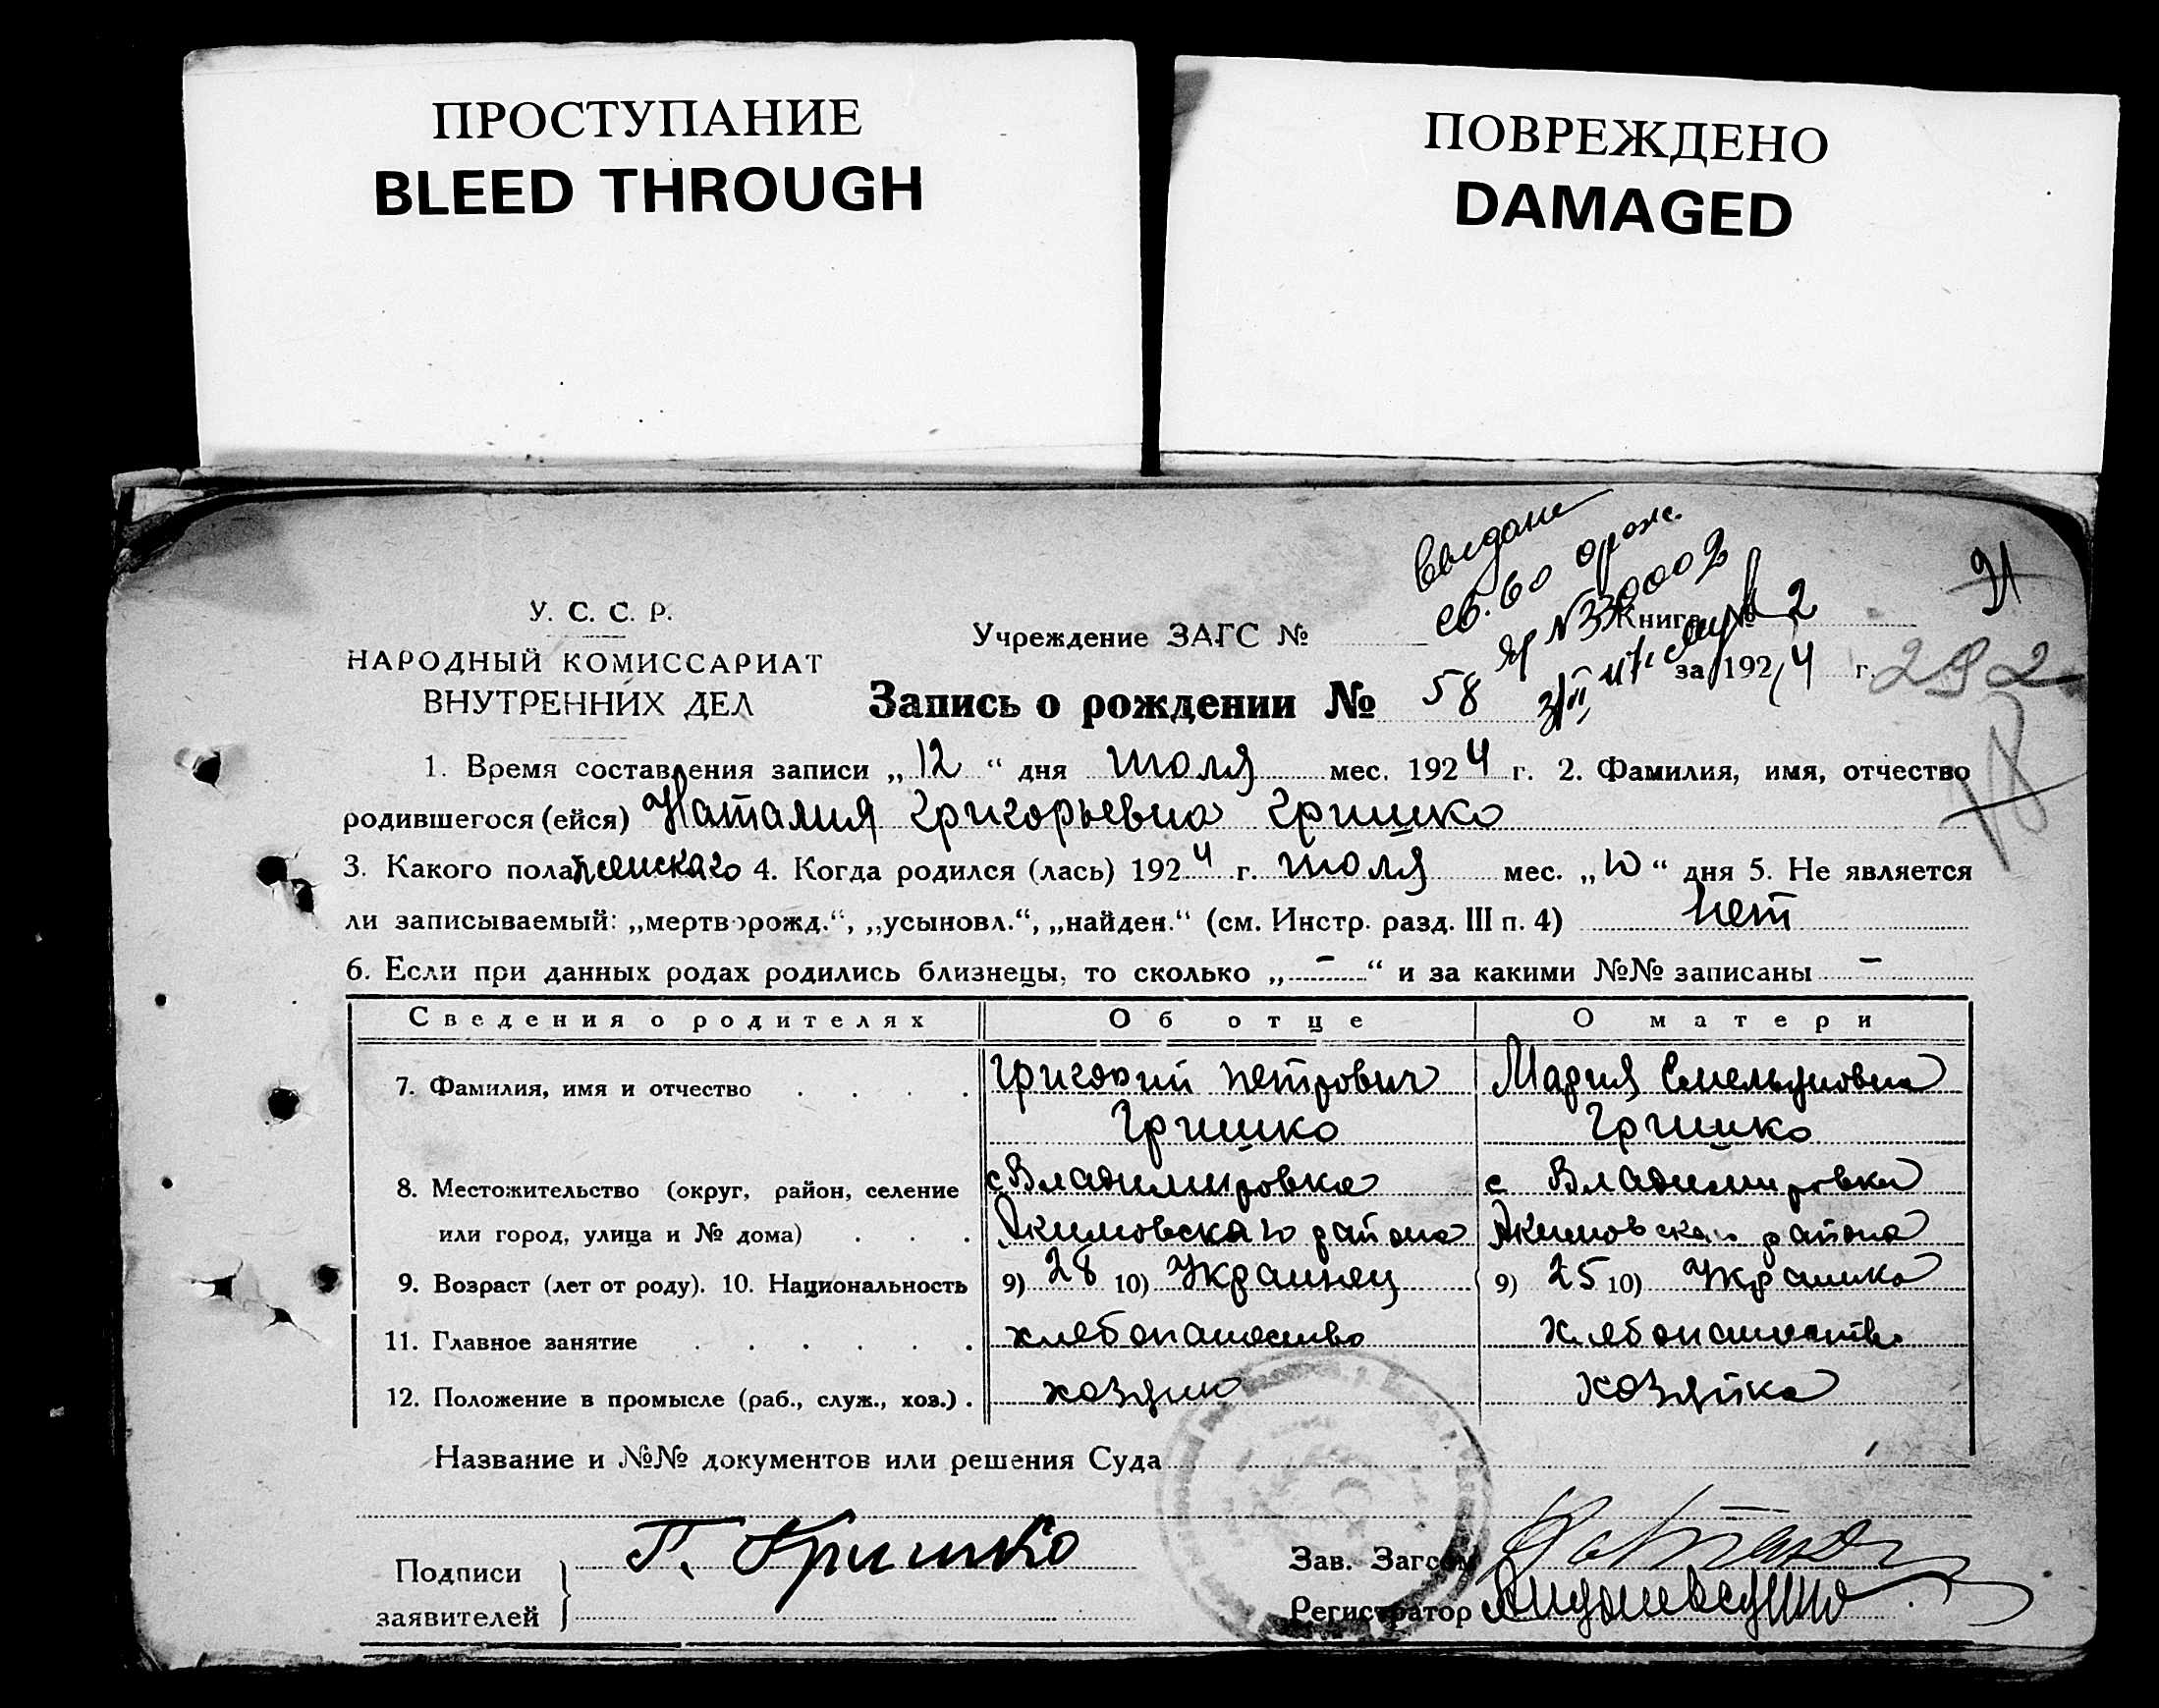 ПРОСТУПАНИЕ
BLEED THROUGH
ПОВРЕЖДЕНО
DAMAGED
выдано
св. во о рож.
21
У. С. С. Р.
НАРОДНЫЙ КОМИССАРИАТ
ВНУТРЕННИХ ДЕЛ
Учреждение ЗАГС №
Книга № 2
за 1924 г.
232
Запись о рождении № 58
1. Время составления записи „12“ дня июля мес. 1924 г. 2. Фамилия, имя, отчество
родившегося (ейся) Наталия Григорьевна Гришко
3. Какого пола женскаго 4. Когда родился (лась) 1924 г. июля мес. „10“ дня 5. Не является
ли записываемый: „мертворожд.“, „усыновл.“, „найден.“ (см. Инстр. разд. III п. 4) нет
6. Если при данных родах родились близнецы, то сколько „-“ и за какими №№ записаны -
Сведения о родителях Об отце О матери
7. Фамилия, имя и отчество . . . . Григорий Петрович Мария Емельяновна
Гришко Гришко
8. Местожительство (округ, район, селение с Владимировка с Владимировки
или город, улица и № дома) . . . Акимовскаго района Акимовскаго района
9. Возраст (лет от роду). 10. Национальность 9) 28 10) Украинец 9) 25 10) Украинка
11. Главное занятие . . . . . . хлебопашество хлебопашество
12. Положение в промысле (раб., служ., хоз.) . хозяин хозяйка
Название и №№ документов или решения Суда
Подписи
заявителей
Г. Гришко
Зав. Загсом
Регистратор